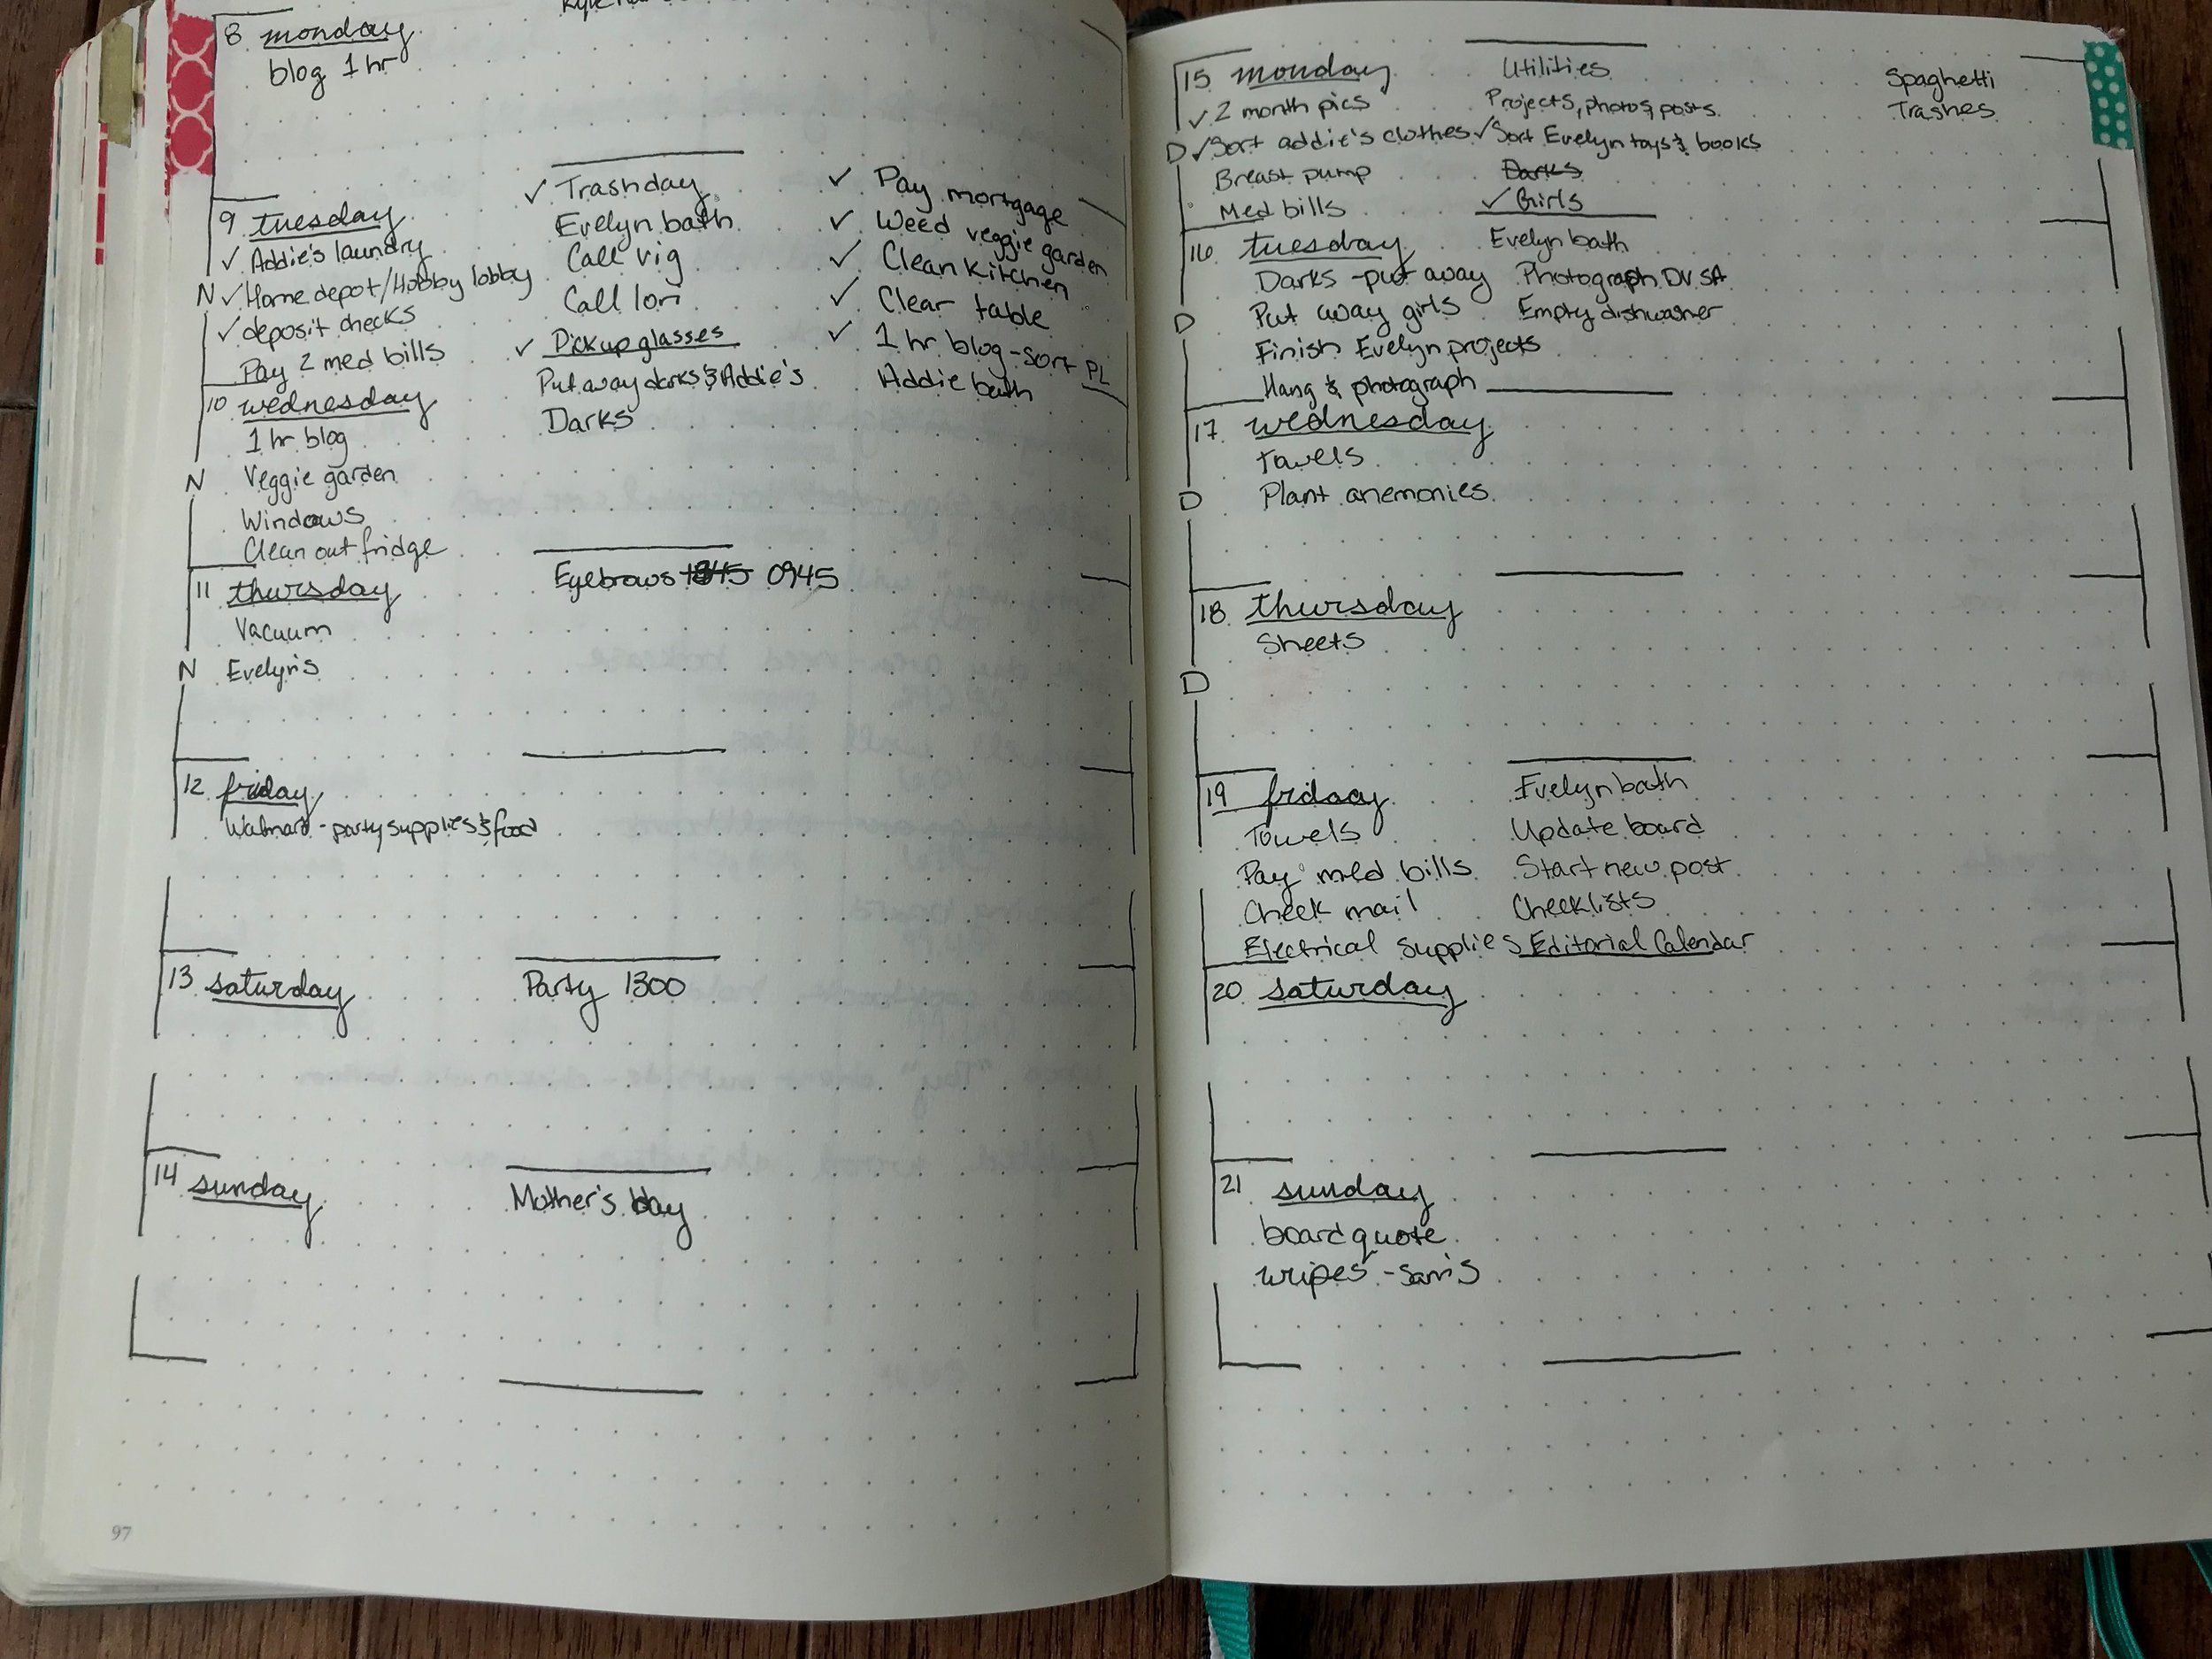 8 monday
blog 1 hr
9 tuesday
✓ Addie's laundry
N ✓ Home depot/Hobby lobby
✓ deposit checks
Pay 2 med bills
✓ Trashday
Evelyn bath
Call vig
Call lori
✓ Pickup glasses
✓ Pay mortgage
✓ Weed veggie garden
✓ Clean kitchen
✓ Clear table
✓ 1 hr blog - sort PL
Addie bath
10 wednesday
1 hr blog
N Veggie garden
Windows
Clean out fridge
Put away darks & Addie's
Darks
11 thursday
Vacuum
N Evelyn's
Eyebrows 0945
12 friday
Walmart - party supplies & food
13 saturday
Party 1300
14 sunday
Mother's Day
97
15 monday
✓ 2 month pics
D ✓ Sort addie's clothes
Breast pump
Med bills
Utilities
Projects, photos, posts
✓ Sort Evelyn toys & books
Darks
✓ Girls
Spaghetti
Trashes
16 tuesday
Darks - put away
D Put away girls
Finish Evelyn projects
Hang & photograph
Evelyn bath
Photograph DV SA
Empty dishwasher
17 wednesday
Towels
D Plant anemonies
18 thursday
Sheets
D
19 friday
Towels
Pay med bills
Check mail
Electrical supplies
Evelyn bath
Update board
Start new post
Checklists
Editorial Calendar
20 saturday
21 sunday
board quote
wripes - Sam's